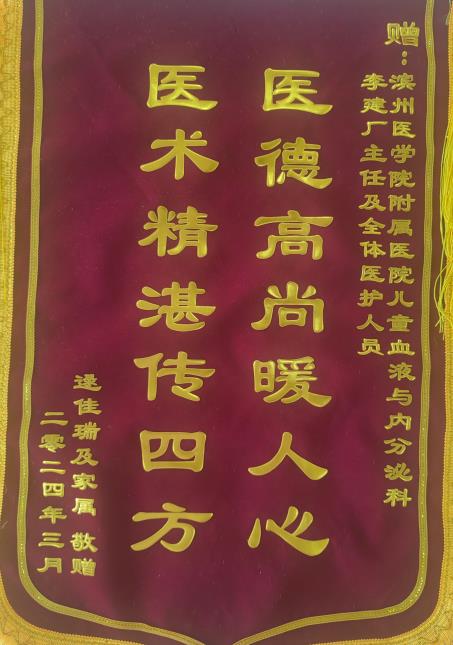 赠：滨州医学院附属医院儿童血液与内分泌科
李建厂主任及全体医护人员
医德高尚暖人心
医术精湛传四方
逯佳瑞及家属 敬赠
二零二四年三月